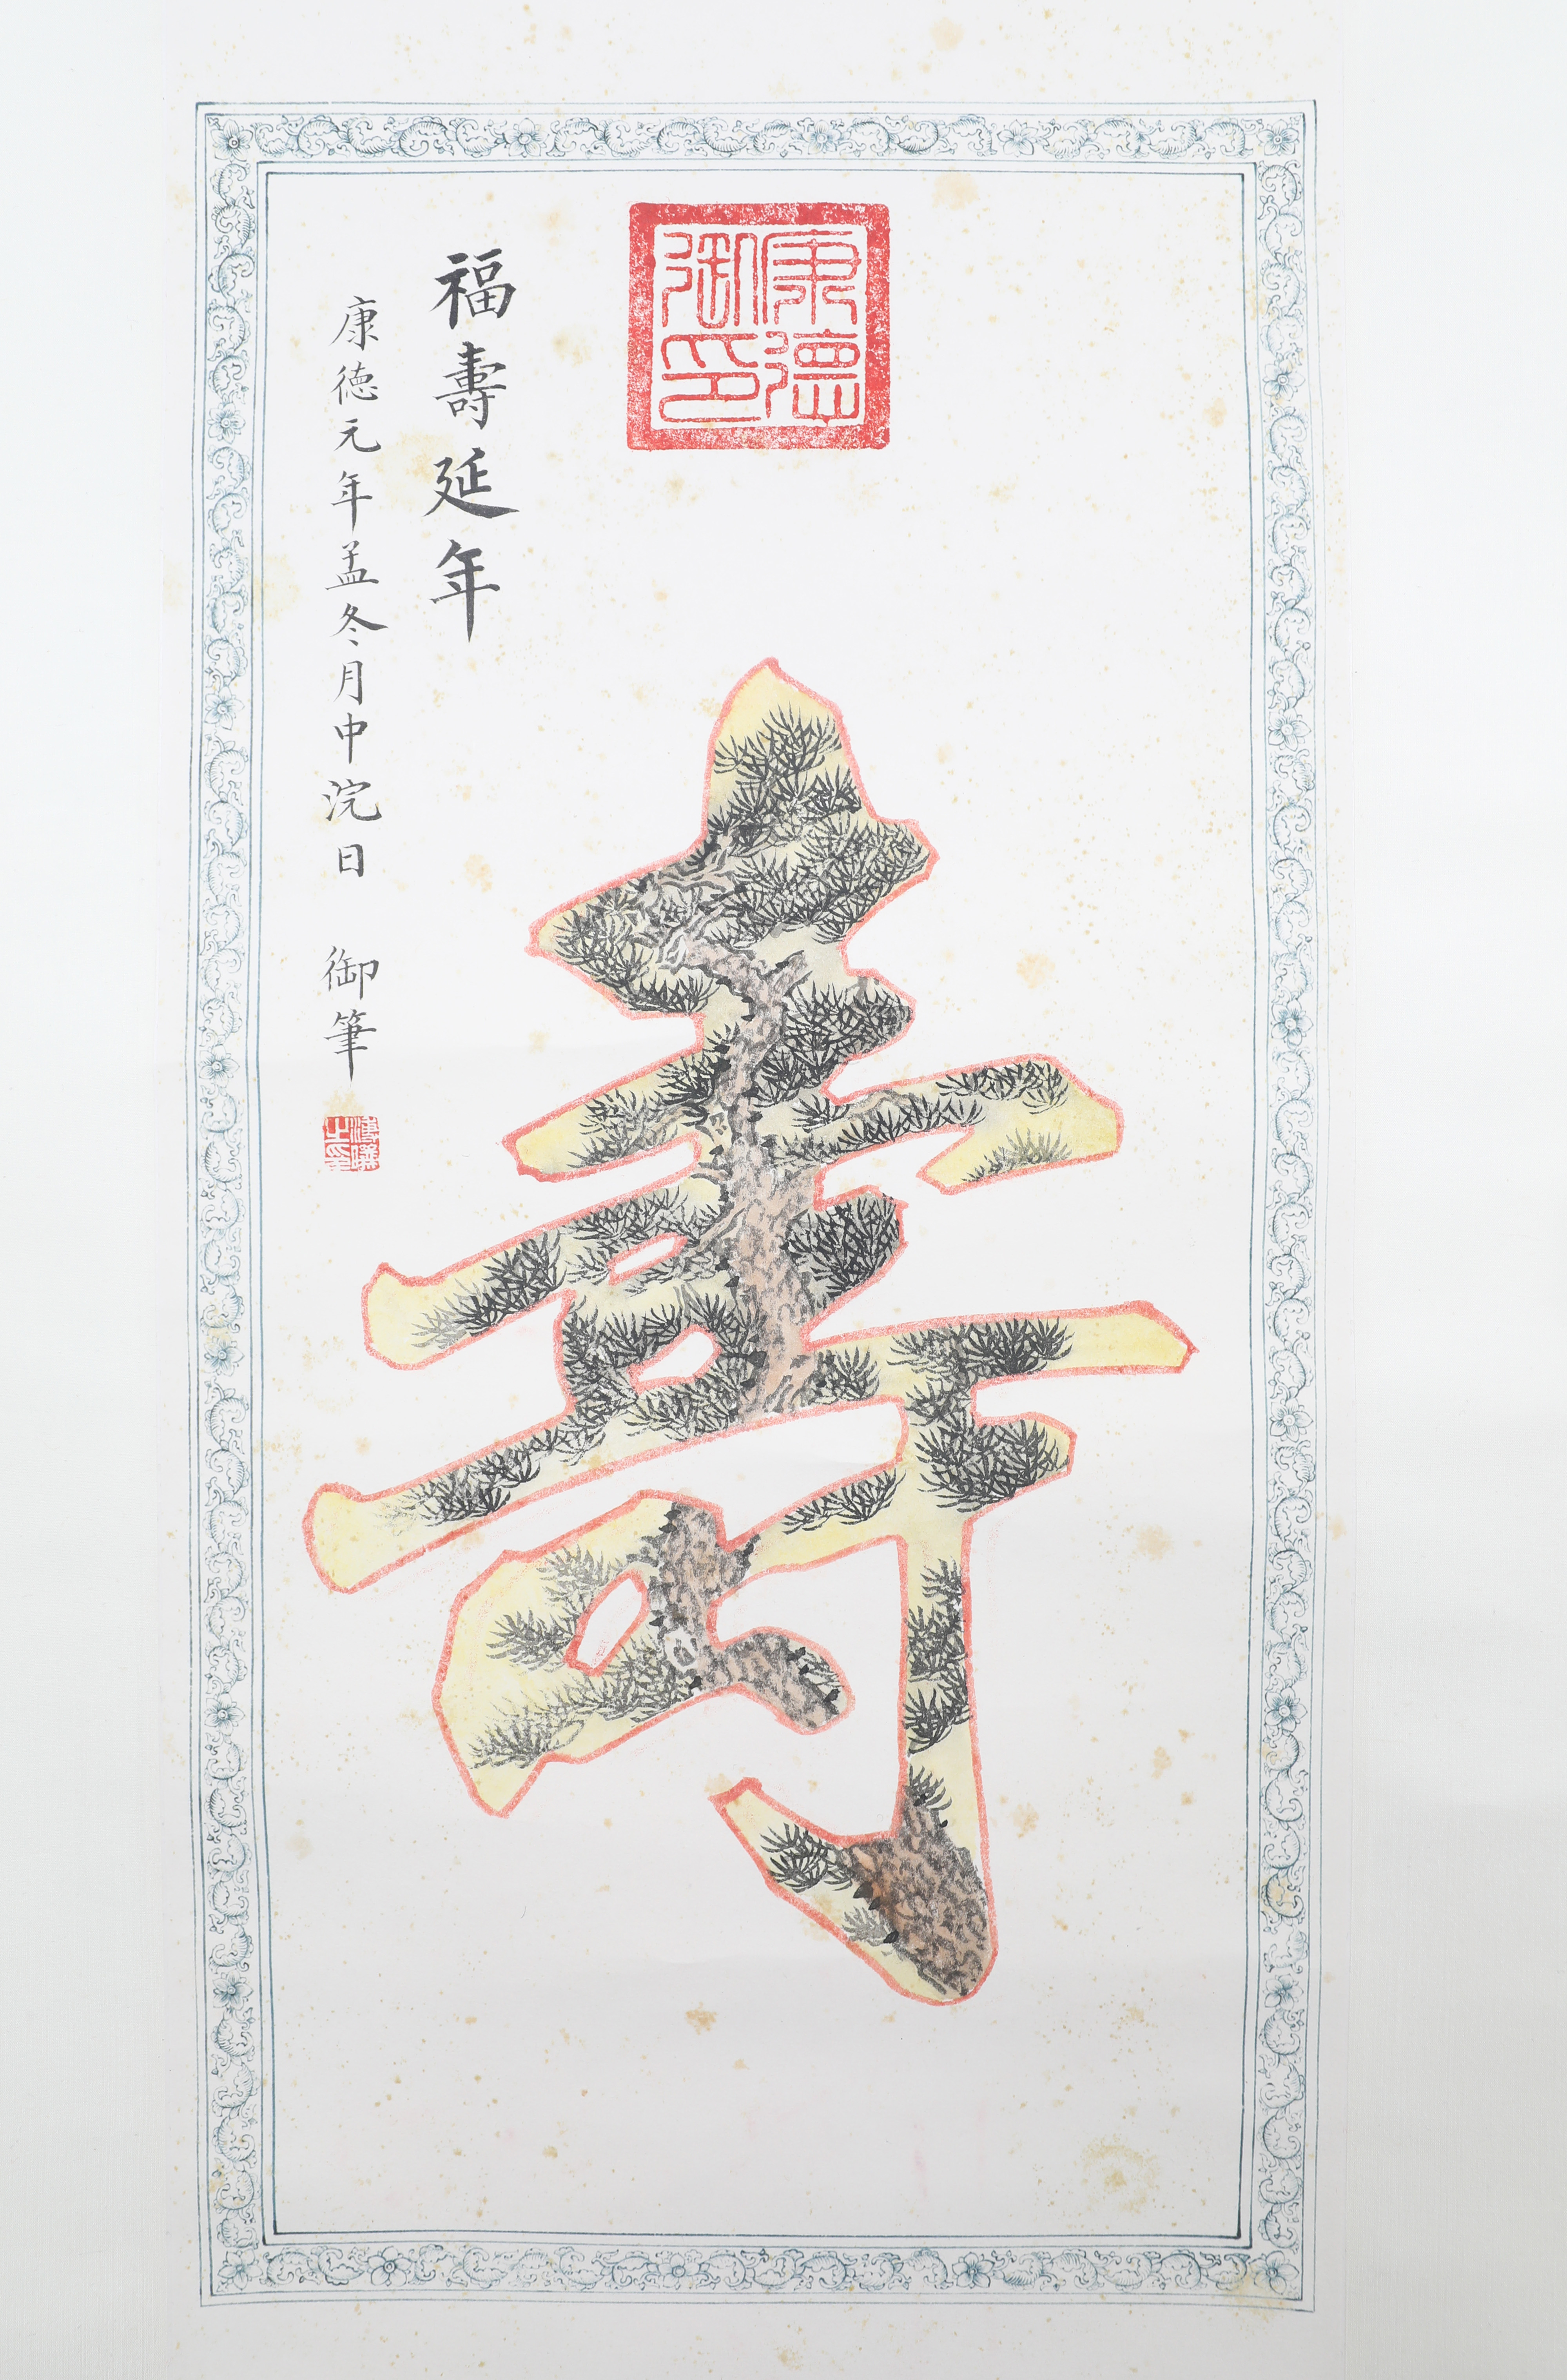 康德御印
壽
福壽延年
康德元年孟冬月中浣日 御筆
溥儀之印